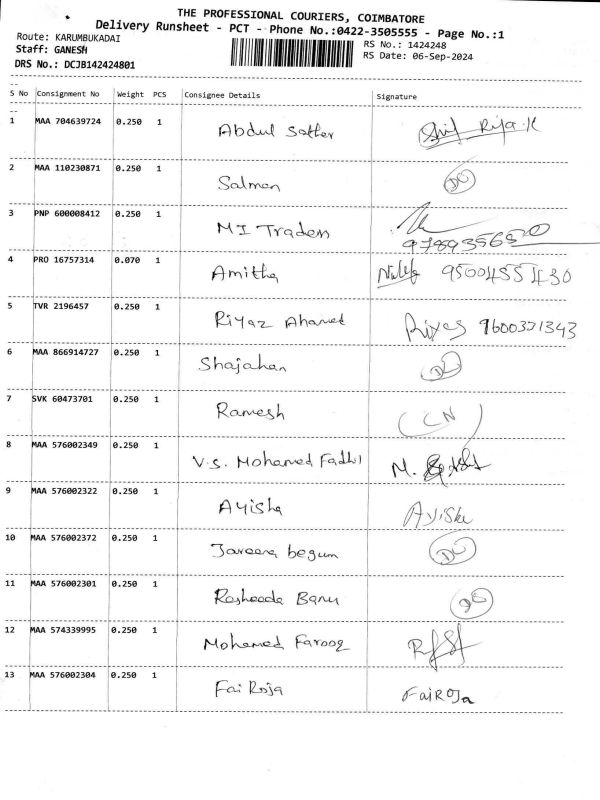 THE PROFESSIONAL COURIERS, COIMBATORE
Delivery Runsheet - PCT - Phone No.:0422-3505555 - Page No.:1
Route: KARUMBUKADAI
RS No.: 1424248
Staff: GANESH
RS Date: 06-Sep-2024
DRS No.: DCJB142424801
--
S No Consignment No Weight PCS Consignee Details Signature
--
1 MAA 704639724 0.250 1 Abdul Sather
2 MAA 110230871 0.250 1 Salman
3 PNP 600008412 0.250 1 MI Traders
4 PRO 16757314 0.070 1 Amitha 9500455430
5 TVR 2196457 0.250 1 Riyaz Ahamed 9600321343
6 MAA 866914727 0.250 1 Shajahan
7 SVK 60473701 0.250 1 Ramesh (CN)
8 MAA 576002349 0.250 1 V.S. Mohamed Fadhil M.
9 MAA 576002322 0.250 1 Ayisha Ayisha
10 MAA 576002372 0.250 1 Jareena begum
11 MAA 576002301 0.250 1 Rasheeda Banu
12 MAA 574339995 0.250 1 Mohamed Farooq
13 MAA 576002304 0.250 1 Fai Roja FaiRoja